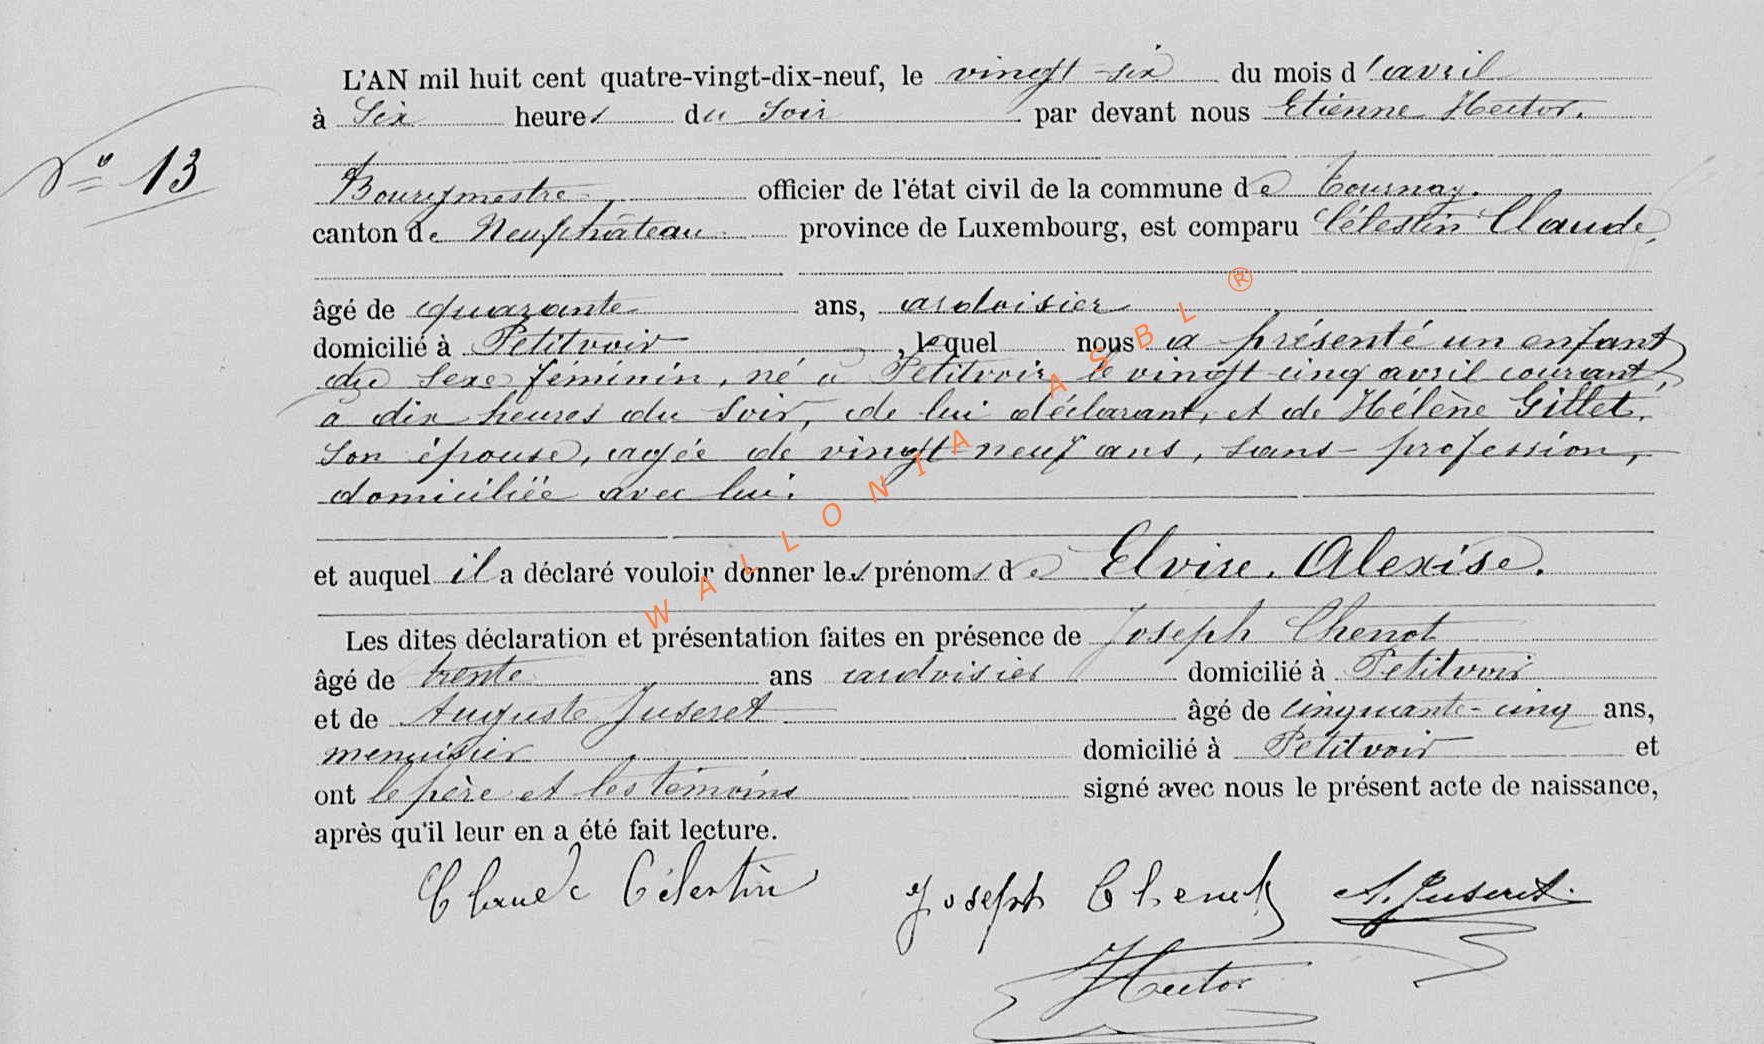 L'AN mil huit cent quatre-vingt-dix-neuf, le vingt-six du mois d'avril
à Six heures du soir par devant nous Etienne Hector.
N° 13
Bourgmestre officier de l'état civil de la commune de Tournay.
canton de Neufchâteau province de Luxembourg, est comparu Célestin Claude,
âgé de quarante ans, ardoisier
domicilié à Petitvoir, lequel nous a présenté un enfant
du sexe féminin, né à Petitvoir, le vingt cinq avril courant,
à dix heures du soir, de lui déclarant, et de Hélène Gillet,
son épouse, agée de vingt neuf ans, sans profession,
domiciliée avec lui.
et auquel il a déclaré vouloir donner les prénoms de Elvise, Alexise.
Les dites déclaration et présentation faites en présence de Joseph Chenot
âgé de trente ans ardoisier domicilié à Petitvoir
et de Auguste Juseret âgé de cinquante-cinq ans,
menuisier domicilié à Petitvoir et
ont le père et les témoins signé avec nous le présent acte de naissance,
après qu'il leur en a été fait lecture.
Claude Célestin Joseph Chenot A. Juseret.
Hector
WALLONIA ASBL ®